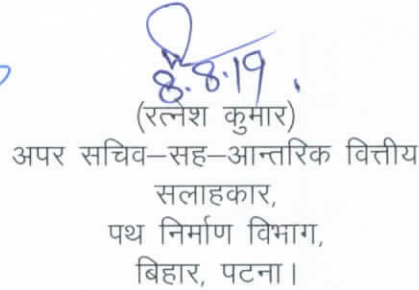 8.8.19.
(रत्नेश कुमार)
अपर सचिव–सह–आन्तरिक वित्तीय
सलाहकार,
पथ निर्माण विभाग,
बिहार, पटना।